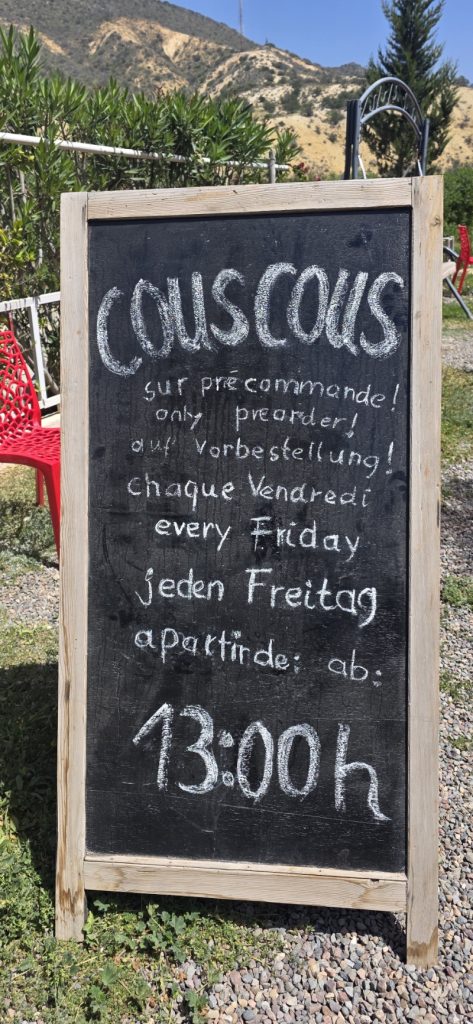 COUSCOUS
sur précommande!
only preorder!
auf Vorbestellung!
chaque Vendredi
every Friday
jeden Freitag
apartirde: ab:
13:00h